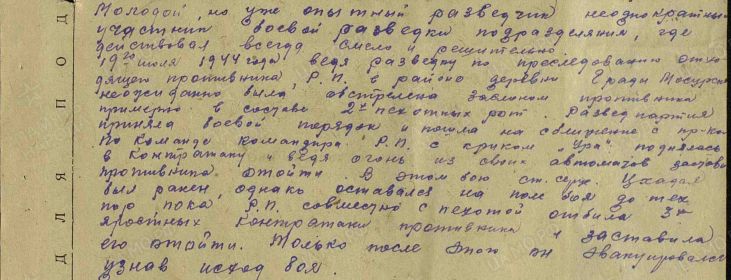 Молодой, но уже опытный разведчик неоднократный
участник боевой разведки подразделения, где
действовал всегда смело и решительно
19го июля 1944 года ведя разведку по преследованию отхо-
дящего противника, Р.П. в районе деревни Гради Мосурск
неожиданно была обстрелена заслоном противника
примерно в составе 2х пехотных рот. Развед партия
приняла боевой порядок и пошла на сближение с пр-ком
По команде командира Р.П. с криком "Ура" поднялась
в контратаку и ведя огонь из своих автоматов заставив
противника отойти. В этом бою ст. серж.
был ранен, однако оставался на поле боя до тех
пор пока Р.П. совместно с пехотой отбила 3и
яростных контратаки противника и заставила
его отойти. Только после этого он эвакуировался
узнав исход боя.
ДЛЯ ПОД